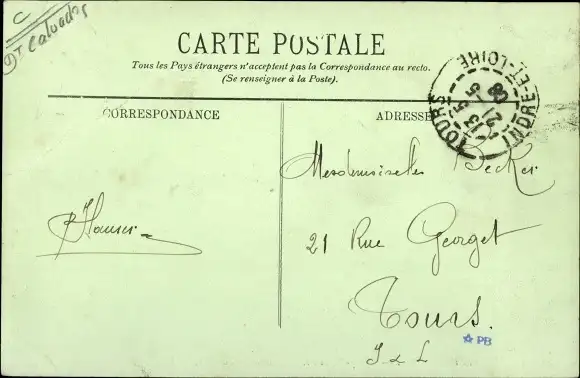 C
Dt Calvados
CARTE POSTALE
Tous les Pays étrangers n'acceptent pas la Correspondance au recto.
(Se renseigner à la Poste).
CORRESPONDANCE
ADRESSE
TOURS
INDRE-ET-LOIRE
Mesdemoiselles Becker
21 Rue Georget
Tours.
I & L
PB